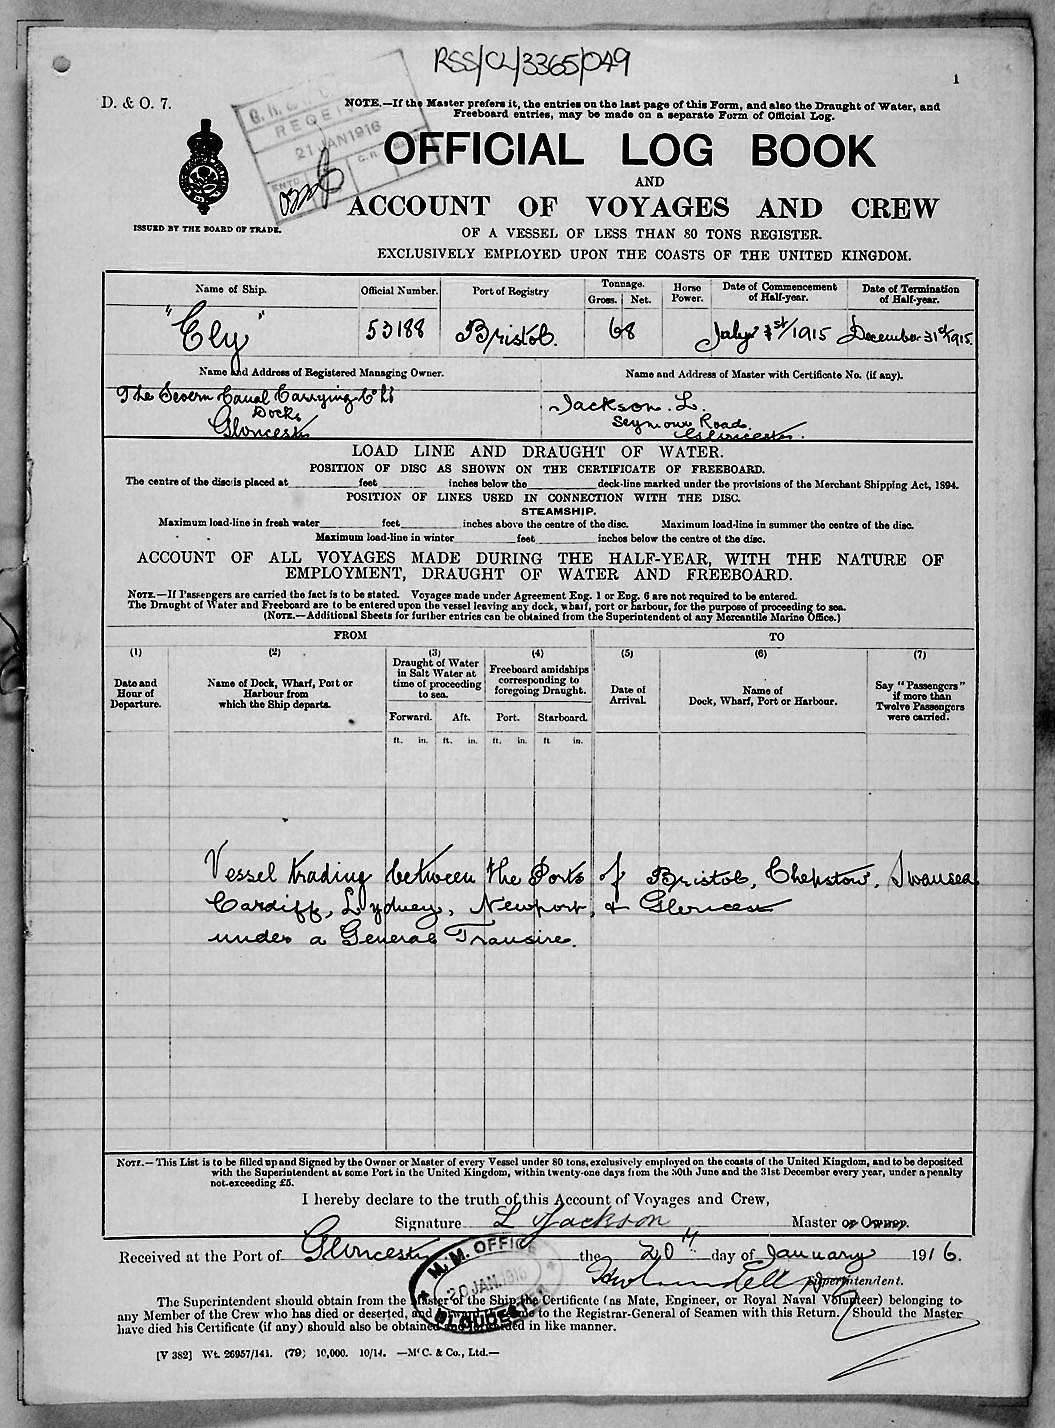 RSS/CL/3365/049
1
D. & O. 7.
RECEIVED
21 JAN 1916
NOTE.—If the Master prefers it, the entries on the last page of this Form, and also the Draught of Water, and
Freeboard entries, may be made on a separate Form of Official Log.
OFFICIAL LOG BOOK
AND
ACCOUNT OF VOYAGES AND CREW
ISSUED BY THE BOARD OF TRADE.
OF A VESSEL OF LESS THAN 80 TONS REGISTER.
EXCLUSIVELY EMPLOYED UPON THE COASTS OF THE UNITED KINGDOM.
Name of Ship. Official Number. Port of Registry Tonnage. Gross. Net. Horse Power. Date of Commencement of Half-year. Date of Termination of Half-year.
"Ely" 53188 Bristol. 68 July 1st/1915 December 31st/1915.
Name and Address of Registered Managing Owner. Name and Address of Master with Certificate No. (if any).
The Severn Canal Carrying Co Ltd
Docks
Gloucester
Jackson. L.
Seymour Road.
Gloucester.
LOAD LINE AND DRAUGHT OF WATER.
POSITION OF DISC AS SHOWN ON THE CERTIFICATE OF FREEBOARD.
The centre of the disc is placed at feet inches below the deck-line marked under the provisions of the Merchant Shipping Act, 1894.
POSITION OF LINES USED IN CONNECTION WITH THE DISC.
STEAMSHIP.
Maximum load-line in fresh water feet inches above the centre of the disc. Maximum load-line in summer the centre of the disc.
Maximum load-line in winter feet inches below the centre of the disc.
ACCOUNT OF ALL VOYAGES MADE DURING THE HALF-YEAR, WITH THE NATURE OF
EMPLOYMENT, DRAUGHT OF WATER AND FREEBOARD.
NOTE.—If Passengers are carried the fact is to be stated. Voyages made under Agreement Eng. 1 or Eng. 6 are not required to be entered.
The Draught of Water and Freeboard are to be entered upon the vessel leaving any dock, wharf, port or harbour, for the purpose of proceeding to sea.
(NOTE.—Additional Sheets for further entries can be obtained from the Superintendent of any Mercantile Marine Office.)
FROM TO
(1) (2) (3) (4) (5) (6) (7)
Date and Hour of Departure.
Name of Dock, Wharf, Port or Harbour from which the Ship departs.
Draught of Water in Salt Water at time of proceeding to sea.
Freeboard amidships corresponding to foregoing Draught.
Date of Arrival.
Name of Dock, Wharf, Port or Harbour.
Say "Passengers" if more than Twelve Passengers were carried.
Forward. Aft. Port. Starboard.
ft. in. ft. in. ft. in. ft in.
Vessel trading between the Ports of Bristol, Chepstow, Swansea
Cardiff, Lydney, Newport, & Gloucester
under a General Transire.
NOTE.—This List is to be filled up and Signed by the Owner or Master of every Vessel under 80 tons, exclusively employed on the coasts of the United Kingdom, and to be deposited
with the Superintendent at some Port in the United Kingdom, within twenty-one days from the 30th June and the 31st December every year, under a penalty
not exceeding £5.
I hereby declare to the truth of this Account of Voyages and Crew,
Signature L Jackson Master or Owner.
Received at the Port of Gloucester the 20th day of January 1916.
M.M. OFFICE
20 JAN. 1916
GLOUCESTER
Superintendent.
The Superintendent should obtain from the Master of the Ship the Certificate (as Mate, Engineer, or Royal Naval Volunteer) belonging to
any Member of the Crew who has died or deserted, and forward the same to the Registrar-General of Seamen with this Return. Should the Master
have died his Certificate (if any) should also be obtained and forwarded in like manner.
[V 382] Wt. 26957/141. (79) 10,000. 10/14. —McC. & Co., Ltd.—